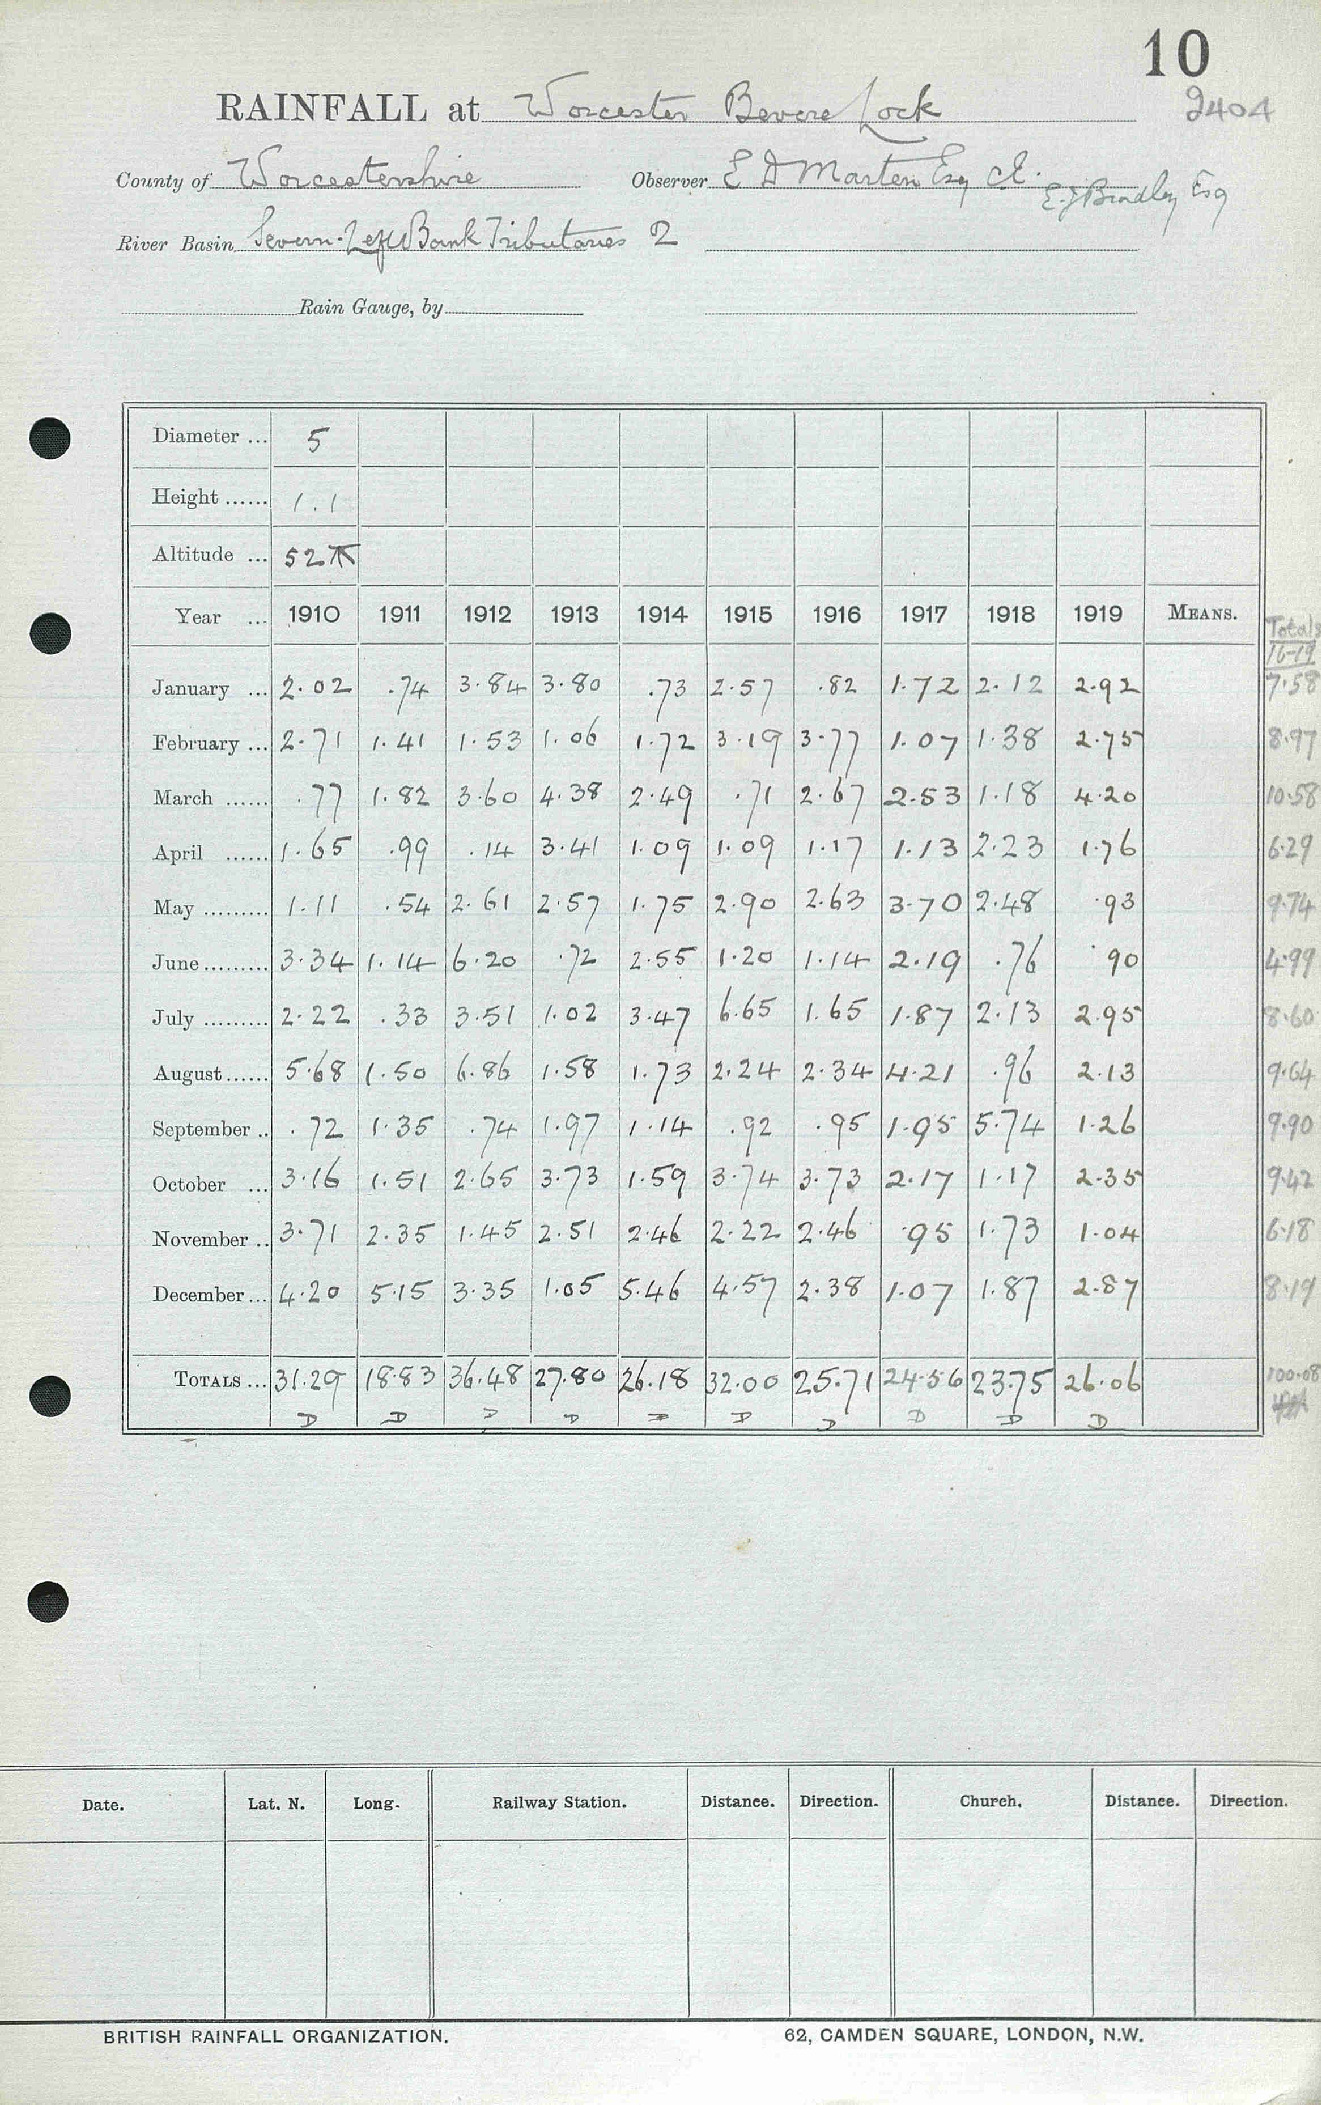 10
RAINFALL at Worcester Bevere Lock 2404
County of Worcestershire Observer E D Marten Esq CE. E.J Bradley Esq
River Basin Severn-Left Bank Tributaries 2
Rain Gauge, by
Diameter ... 5
Height ...... 1.1
Altitude ... 52
Year ... 1910 1911 1912 1913 1914 1915 1916 1917 1918 1919 MEANS. Totals 16-19
January ... 2.02 .74 3.84 3.80 .73 2.57 .82 1.72 2.12 2.92 7.58
February ... 2.71 1.41 1.53 1.06 1.72 3.19 3.77 1.07 1.38 2.75 8.97
March ...... .77 1.82 3.60 4.38 2.49 .71 2.67 2.53 1.18 4.20 10.58
April ...... 1.65 .99 .14 3.41 1.09 1.09 1.17 1.13 2.23 1.76 6.29
May ......... 1.11 .54 2.61 2.57 1.75 2.90 2.63 3.70 2.48 .93 9.74
June ......... 3.34 1.14 6.20 .72 2.55 1.20 1.14 2.19 .76 .90 4.99
July ......... 2.22 .33 3.51 1.02 3.47 6.65 1.65 1.87 2.13 2.95 8.60
August ...... 5.68 1.50 6.86 1.58 1.73 2.24 2.34 4.21 .96 2.13 9.64
September .. .72 1.35 .74 1.97 1.14 .92 .95 1.95 5.74 1.26 9.90
October ... 3.16 1.51 2.65 3.73 1.59 3.74 3.73 2.17 1.17 2.35 9.42
November .. 3.71 2.35 1.45 2.51 2.46 2.22 2.46 .95 1.73 1.04 6.18
December ... 4.20 5.15 3.35 1.05 5.46 4.57 2.38 1.07 1.87 2.87 8.19
TOTALS ... 31.29 18.83 36.48 27.80 26.18 32.00 25.71 24.56 23.75 26.06 100.08
D D D D D D D D D D
Date. Lat. N. Long. Railway Station. Distance. Direction. Church. Distance. Direction.
BRITISH RAINFALL ORGANIZATION. 62, CAMDEN SQUARE, LONDON, N.W.